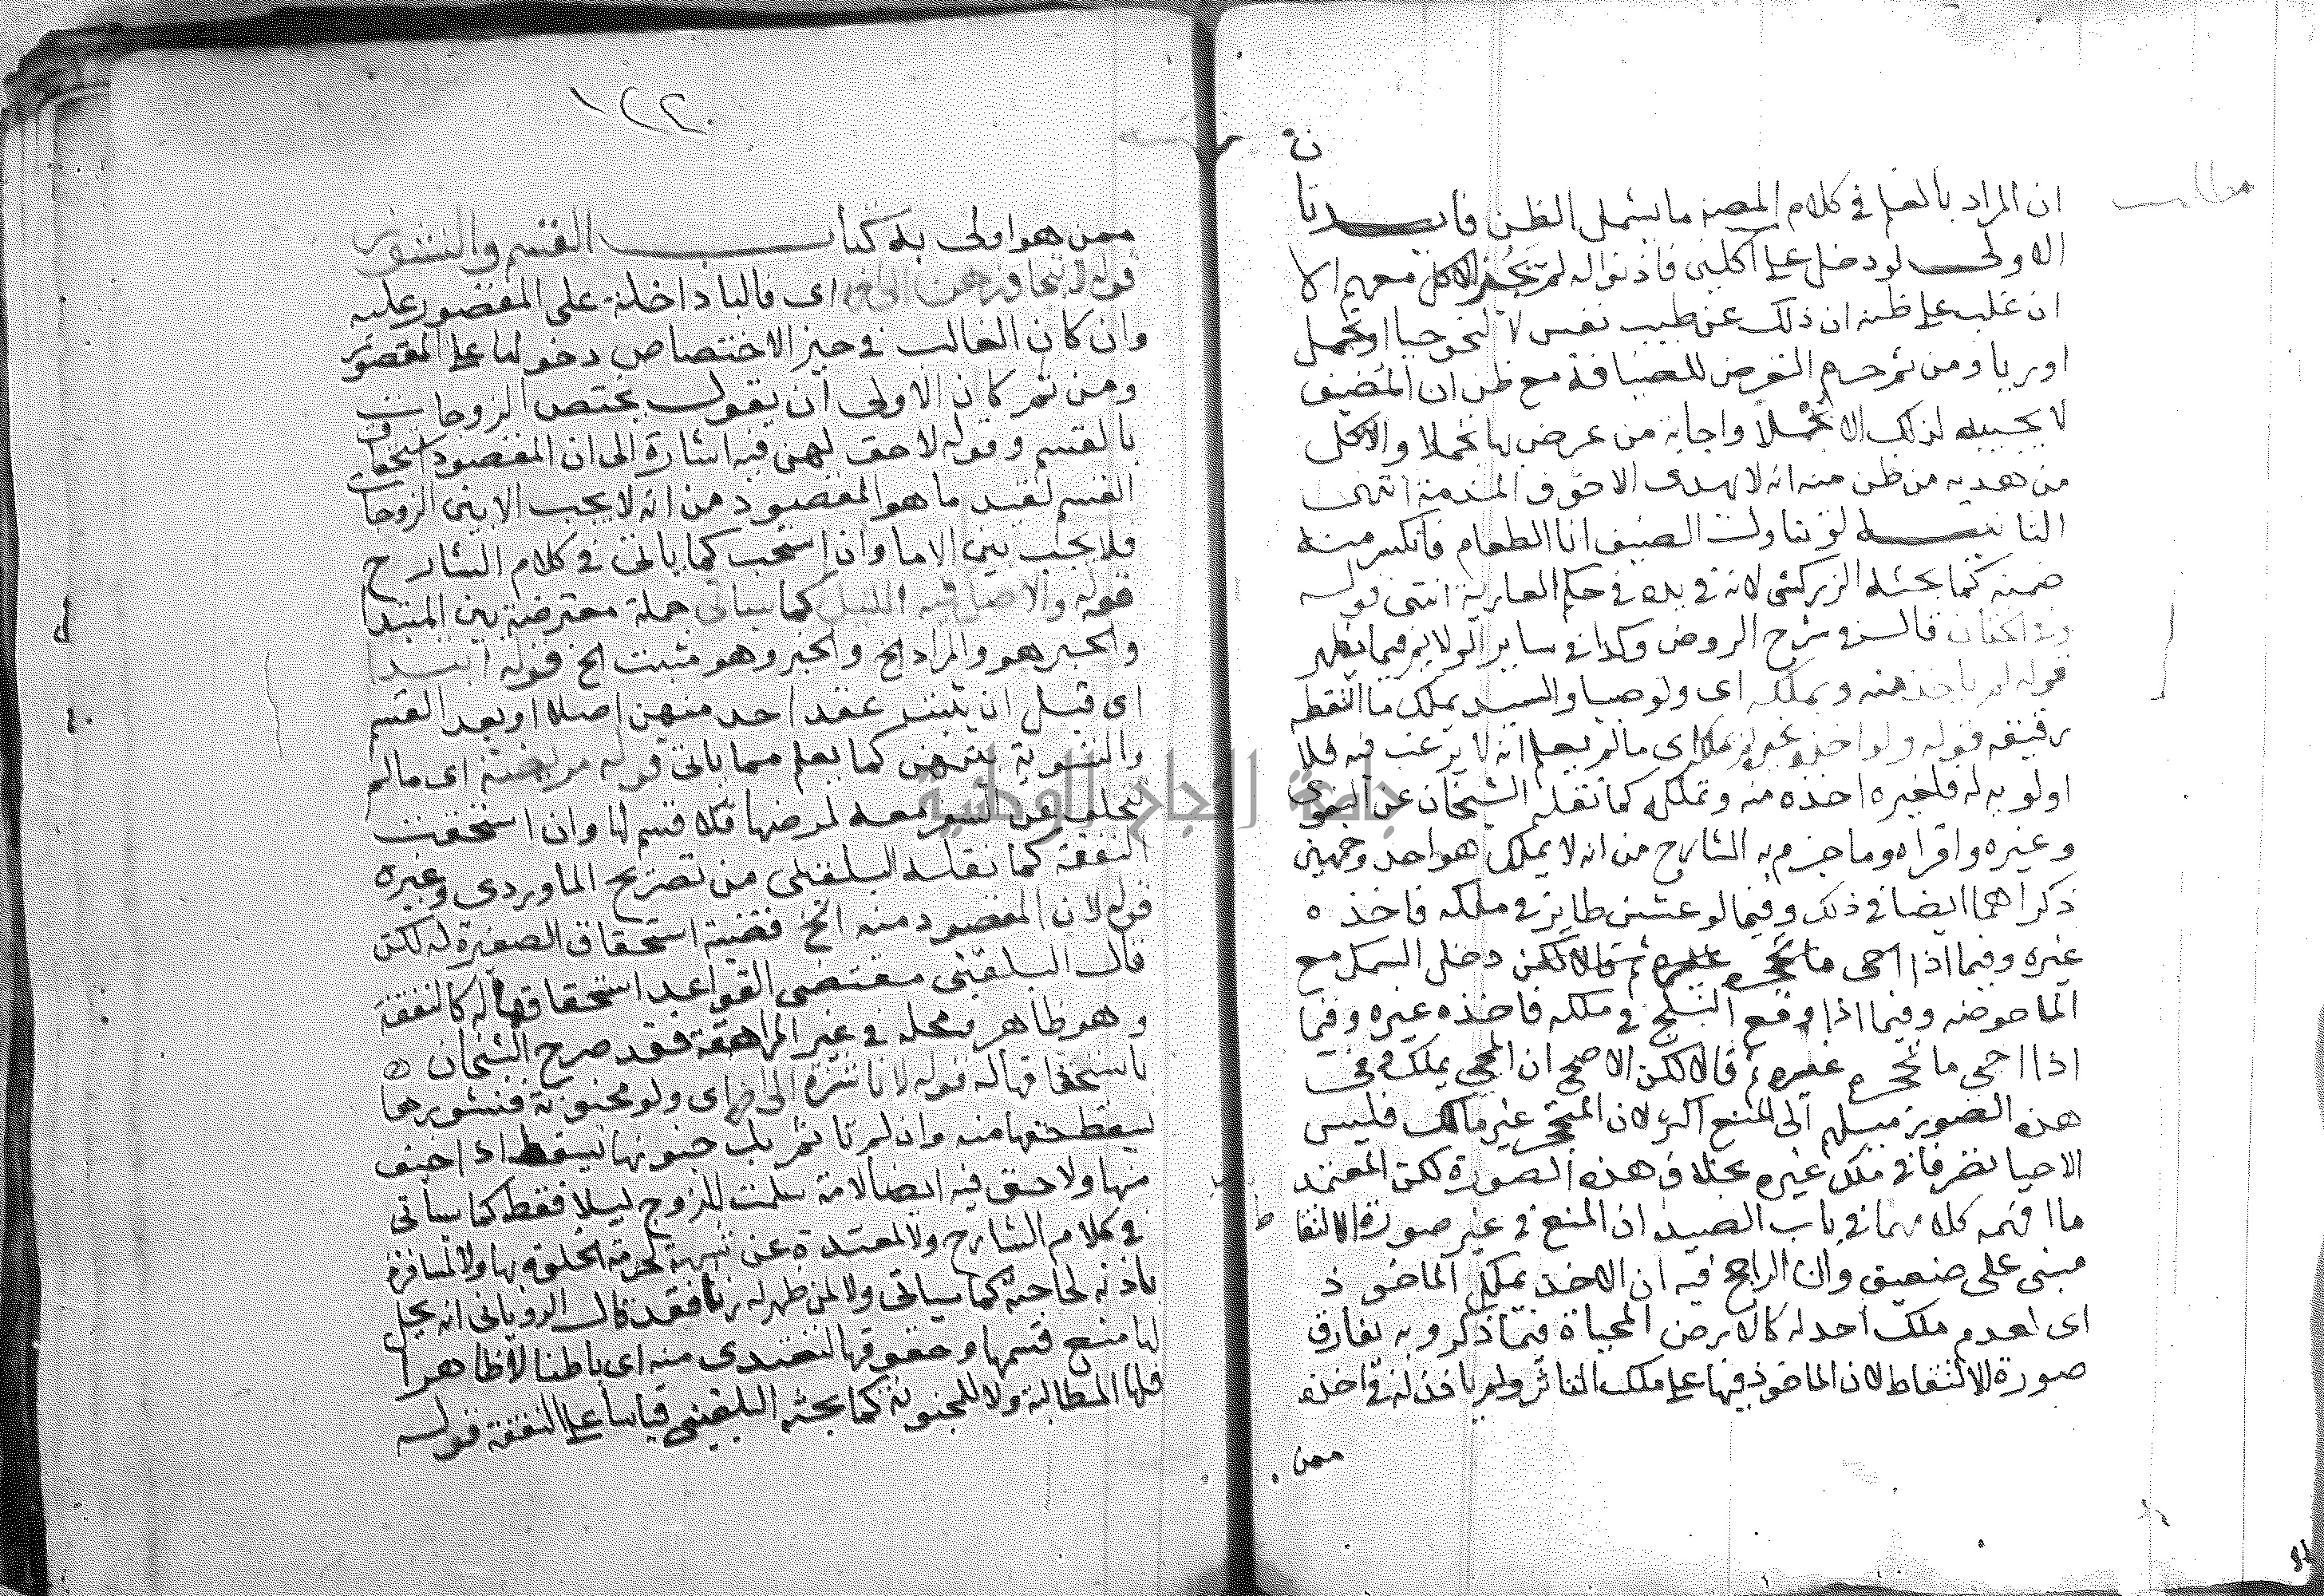 مطلب
ان المراد بالعلم في كلام المصنف ما يشمل الظن فايـــدتان
الاولى لو دخل على آكلين فاذنوا له لم يجز الاكل معهم الا
ان غلب على ظنه ان ذلك عن طيب نفس لا لنحو حيا او تجمل
او ريا ومن ثم حرم التعرض للضيافة مع ظن ان المضيف
لا يجيبه لذلك الا تجملا واجابة من عرض بها تجملا والاكل
من هدية من ظن منه انه لا يهدى الا خوف المذمة انتهى
الثانيـــه لو تناول الضيف انا الطعام فانكسر منه
ضمنه كما بحثه الزركشى لانه في يده في حكم العارية انتهى قوله
قال في شرح الروض وكذا في ساير الولايم فيما يظهر
قوله لم ياخذ منه ويملكه اى ولو صبيا والسيد يملك ما التقطه
رقيقه قوله ولو اخذه غيره لم يملكه اى ما لم يعلم انه لا يرغب فيه فلا
اولوية له فلغيره اخذه منه وتملكه كما نقله الشيخان عن البغوى
وغيره واقراه وما جزم به الشارح من انه لا يملك هو احد وجهين
ذكراهما ايضا في ذلك وفيما لو عشش طاير في ملكه فاخذه
غيره وفيما اذا دخل السمك مع
الما حوضه وفيما اذا وقع الثلج في ملكه فاخذه غيره وفيما
اذا احيى ما تحجره غيره ثم قالا لكن الاصح ان المحيي يملك وفي
هذه الصور ميلهم الى المنع اكثر لان المتحجر غير مالك فليس
الاحيا تصرفا في ملك غيره بخلاف هذه الصورة لكن المعتمد
ما افهمه كلامهما في باب الصيد ان المنع في غير صورة الالتقاط
مبنى على ضعيف وان الراجح فيه ان الاخذ يملك الماخوذ
اى لعدم ملك احد له كالارض المحياة فيما ذكر وبه تفارق
صورة الالتقاط لان الماخوذ فيها على ملك الناثر ولم ياذن له في اخذه
ممن
١٢٢
ممن هو اولى به كتابــــ القسم والنشوز
قوله اى فالبا داخلة على المقصور عليه
وان كان الغالب في حيز الاختصاص دخولها على المقصور
ومن ثم كان الاولى ان يقول يختص الزوجات
بالقسم وقوله لا حق لهن فيه اشارة الى ان المقصود استحقاق
القسم لفيد ما هو المقصود من انه لا يجب الا بين الزوجات
فلا يجب بين الاما وان استحب كما ياتى في كلام الشارح
قوله والاصل فيه الليل كما سياتى جملة معترضة بين المبتدا
والخبر هو والمراد الخ والخبر وهو مثبت الخ قوله ابتدا
اى قبل ان يبتد عقد احد منهن اصلا او بعد القسم
والتسوية بينهن كما يعلم مما ياتى قوله مريضة اى ما لم
تتخلف عن السفر معه لمرضها فلا قسم لها وان استحقت
النفقة كما نقله البلقينى من تصريح الماوردى وغيره
قوله لان المقصود منه الخ قضيته استحقاق الصغيرة له لكن
قال البلقينى مقتضى القواعد استحقاقها له كالنفقة
وهو ظاهر ومحله في غير المراهقة فقد صرح الشيخان
باستحقاقها له قوله لا ناشزة الى اخره اى ولو مجنونة فنشوزها
يسقط حقها منه وان لم تاثم بل جنونها يسقط اذا خيف
منها ولا حق فيه ايضا لامة سلمت للزوج ليلا فقط كما سياتى
في كلام الشارح ولا لمعتدة عن شبهة لحرمة الخلوة بها ولا لمسافرة
باذنه لحاجته كما سياتى ولا لمن ظهر له زنا فقد قال الرويانى انه يحل
لها منع قسمها وحقوقها لتفتدى منه اى باطنا لا ظاهرا
فلها المطالبة ولا للمجنونة كما بحثه البلقينى قياسا على النفقة قوله
جامعة النجاح الوطنية